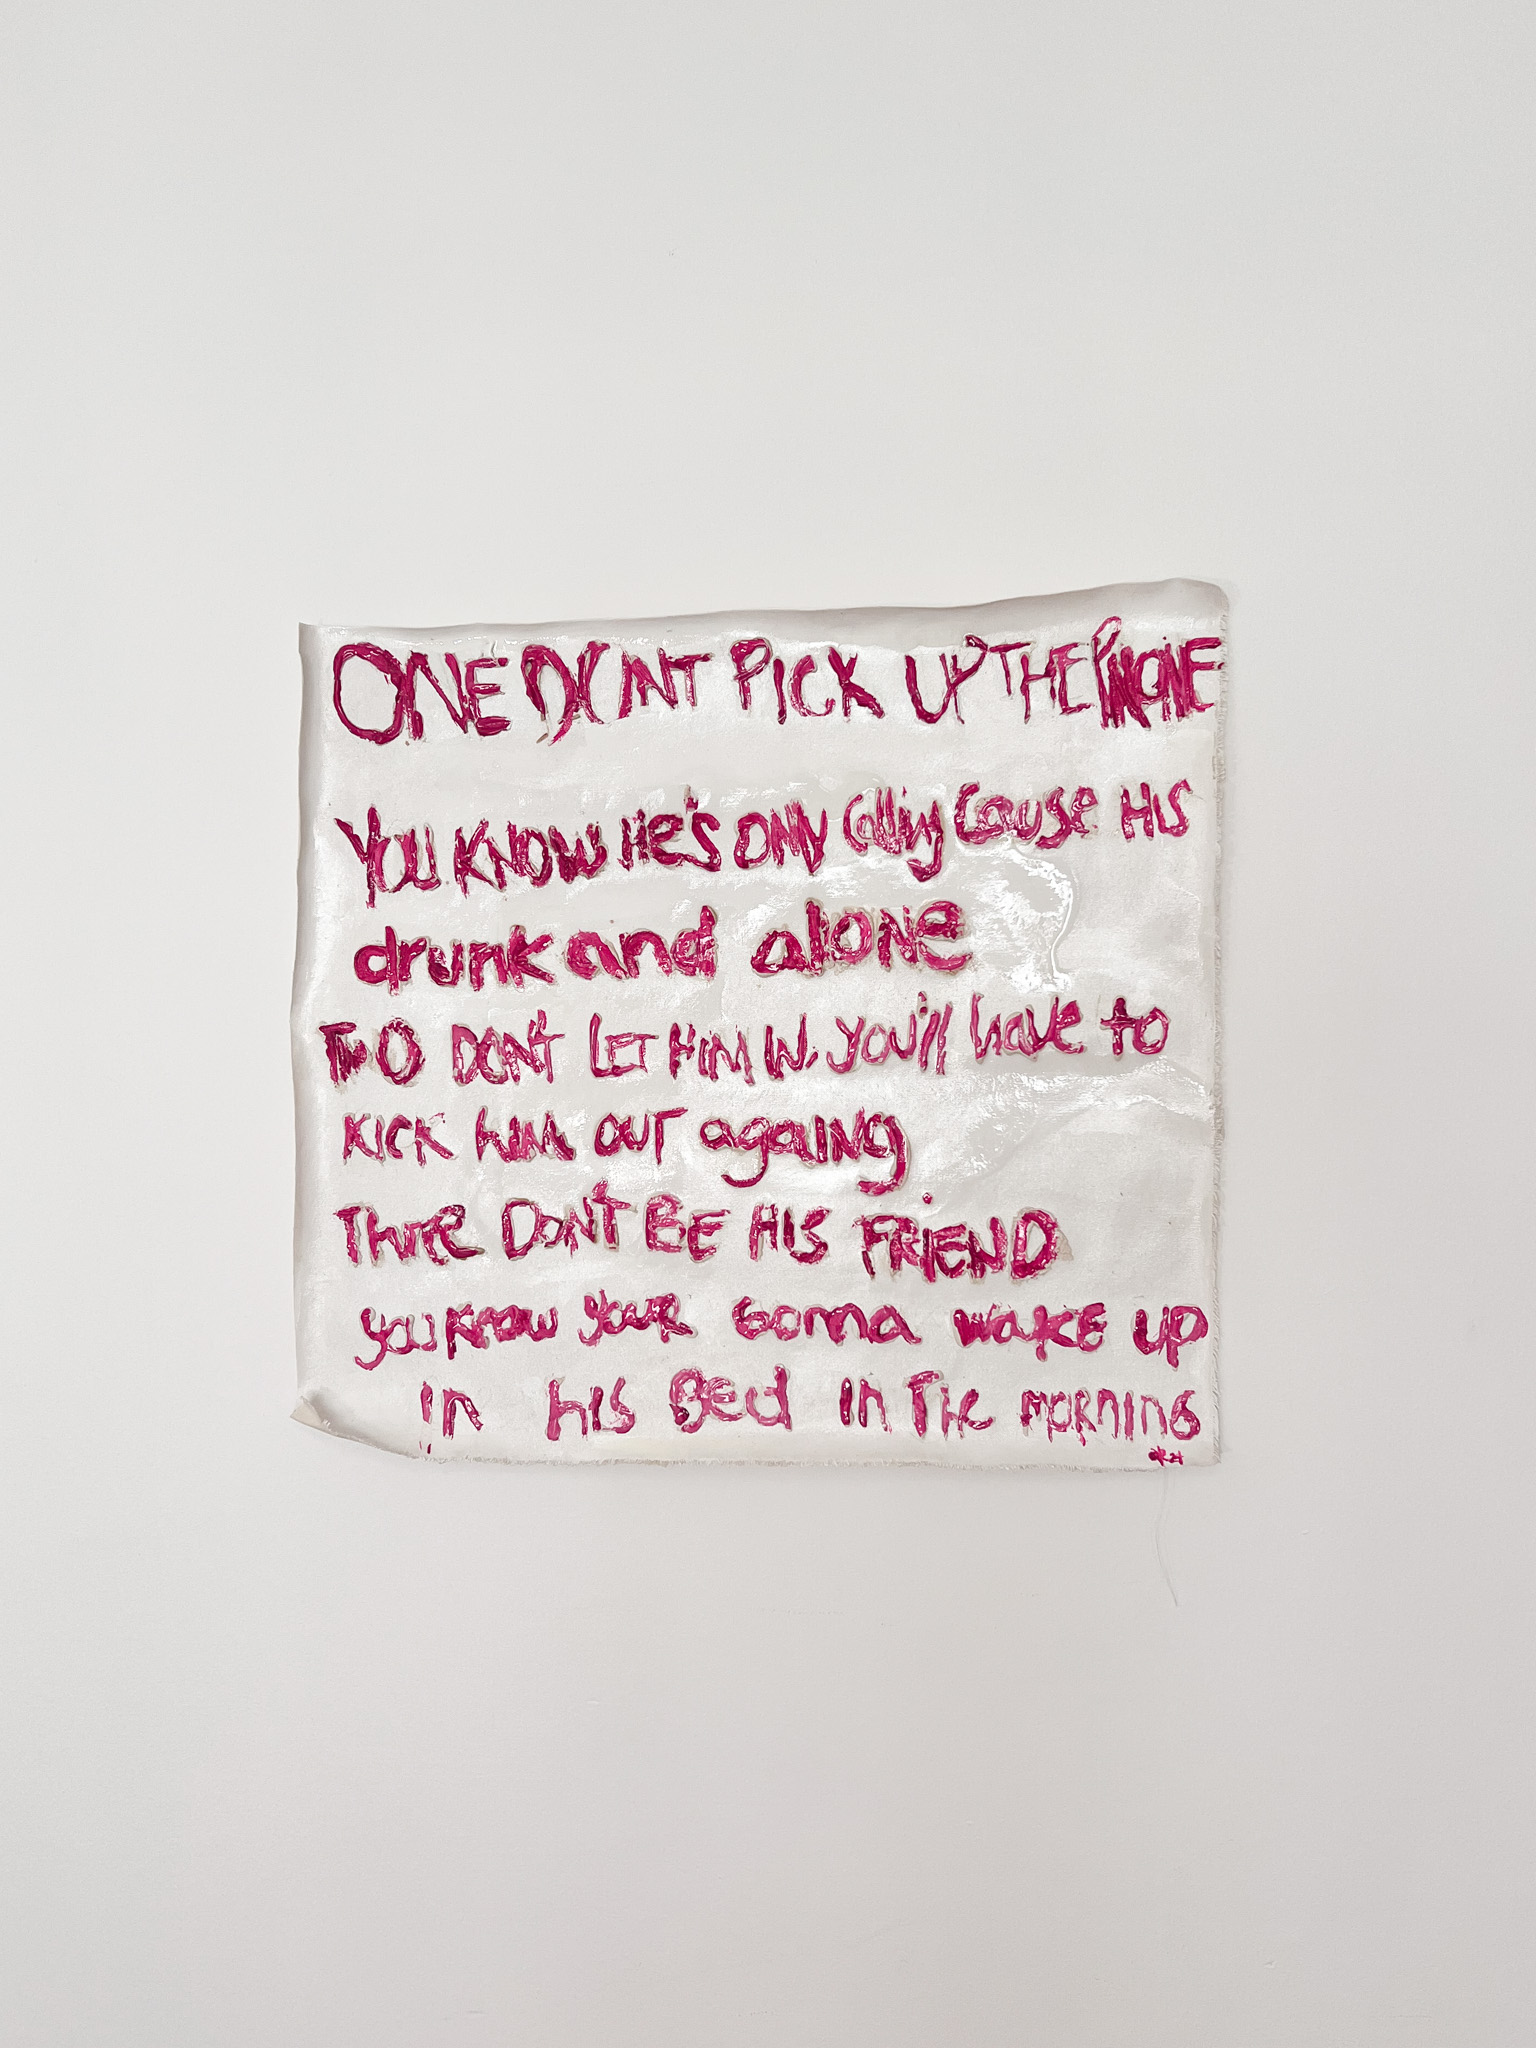 ONE DON'T PICK UP THE PHONE
YOU KNOW HE'S ONLY Calling Cause HIS
drunk and alone
TWO DON'T LET HIM IN. YOU'll have to
KICK him OUT againg
Three DON'T BE HIS FRIEND
you know your Gonna wake up
in his Bed in The MORNING